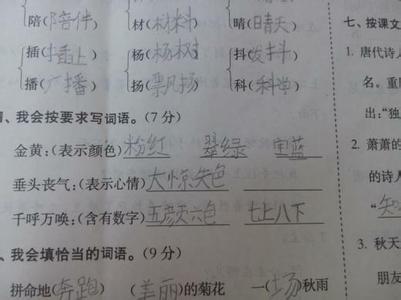 陪(陪伴) 材(材料) 晴(晴天)
插(插上) 杨(杨树) 抖(发抖)
播(广播) 扬(飘风扬) 科(科学)
、我会按要求写词语。(7分)
金黄:(表示颜色) 粉红 翠绿 宝蓝
垂头丧气:(表示心情) 大惊失色
千呼万唤:(含有数字) 五颜六色 七上八下
、我会填恰当的词语。(9分)
拼命地(奔跑) (美丽)的菊花 一(场)秋雨
七、按课文
1. 唐代诗人
名。重
出:"独
2. 萧萧的
的诗人
"知
3. 秋天